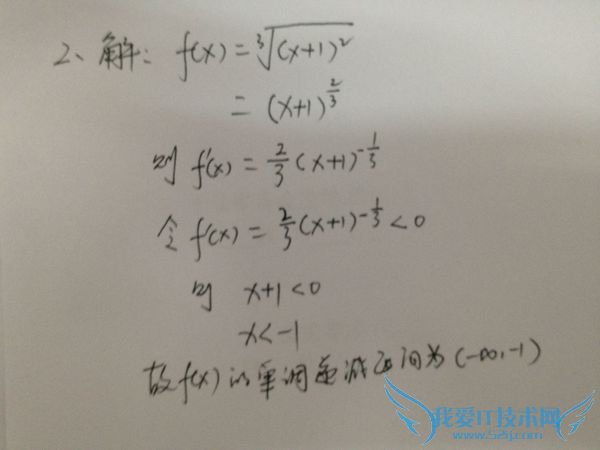 2、解：f(x)=∛(x+1)²
=(x+1)^{2/3}
则 f'(x)=2/3(x+1)^{-1/3}
令 f'(x)=2/3(x+1)^{-1/3}<0
则 x+1<0
x<-1
故f(x)的单调递减区间为(-∞,-1)
我爱IT技术网
www.52ij.com